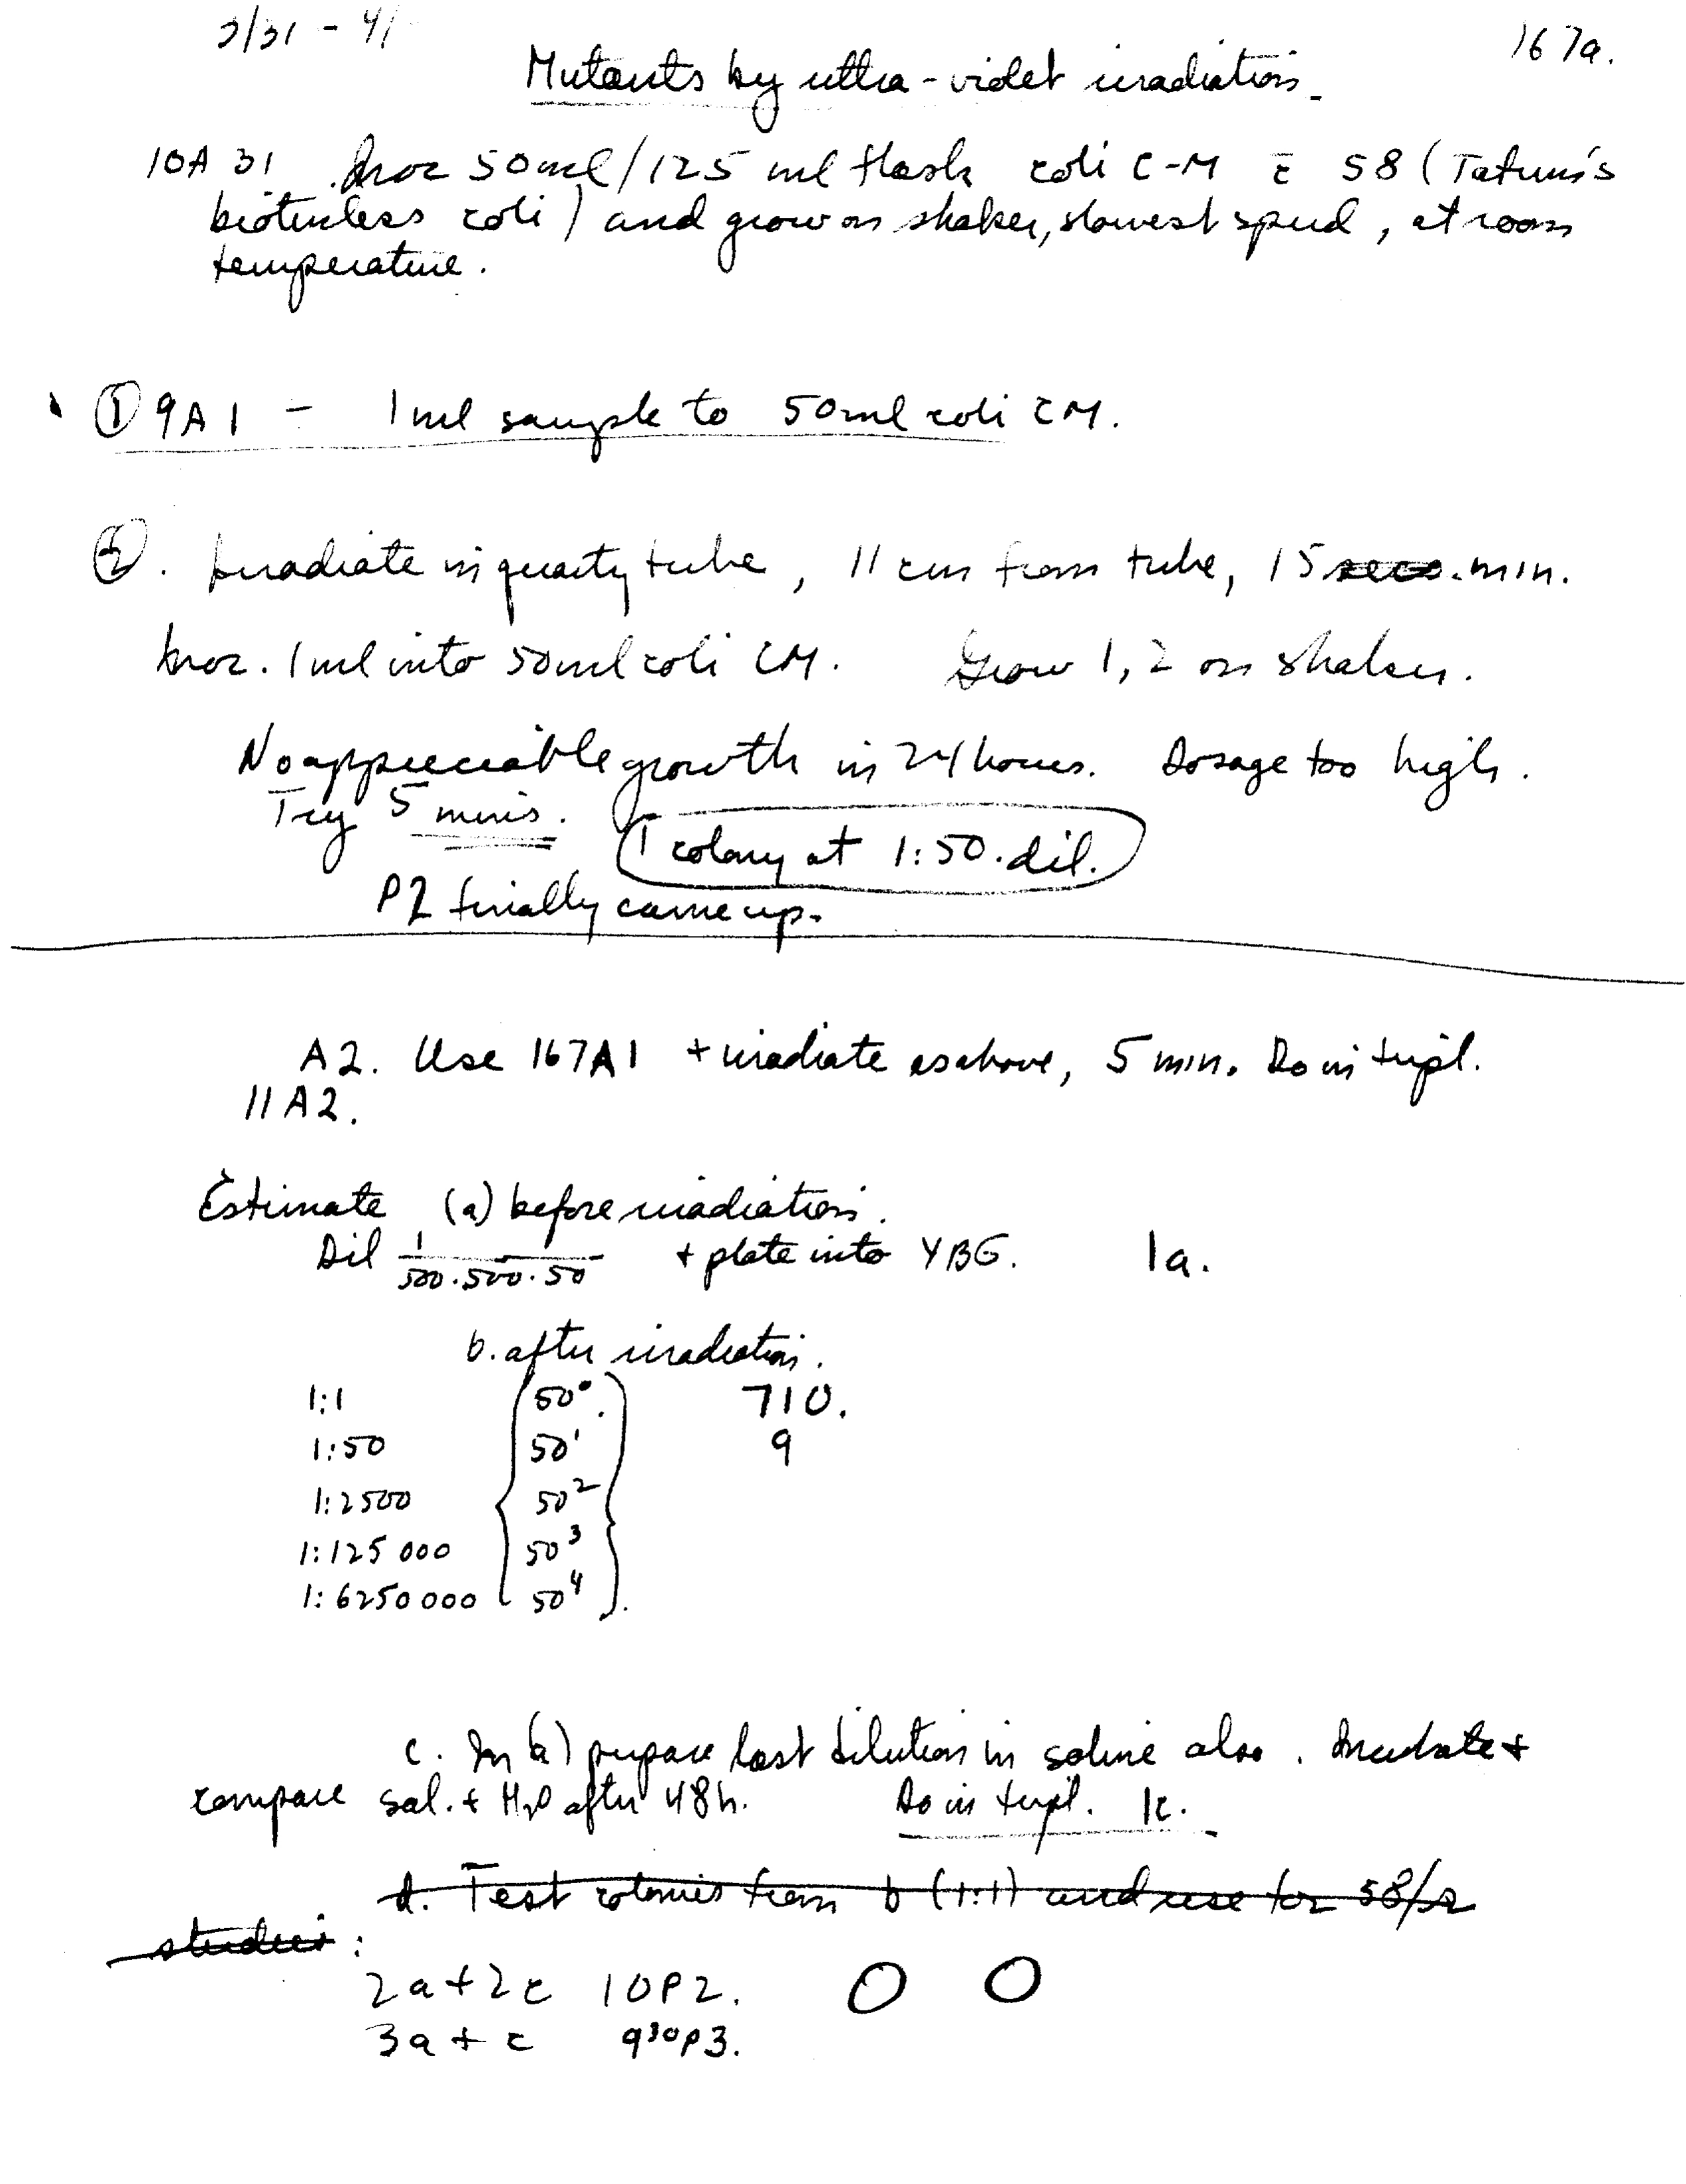 3/31 - 4/
167a.
Mutants by ultra-violet irradiation.
10A 31. Inoc 50 ml/125 ml flask coli C-M c̄ 58 (Tatum's
biotinless coli) and grow on shaker, slowest speed, at room
temperature.
① 9A1 - 1 ml sample to 50 ml coli CM.
②. Irradiate in quartz tube, 11 cm from tube, 15 ~~secs.~~ min.
Inoc. 1 ml into 50 ml coli CM. Grow 1, 2 on shaker.
No appreciable growth in 24 hours. Dosage too high.
Try 5 mins.
1 colony at 1:50. dil.
P2 finally came up.
A2. Use 167A1 + irradiate as above, 5 min. Do in tripl.
11A2.
Estimate (a) before irradiation.
Dil 1/500·500·50 + plate into YBG. 1a.
b. after irradiation.
1:1 50⁰. 710.
1:50 50¹ 9
1:2500 50²
1:125 000 50³
1:6250 000 50⁴
c. In (a) prepare last dilution in saline also. Incubate +
compare sal. + H₂O after 48 h. Do in tripl. 1c.
~~d. Test colonies from b (1:1) and use for 58/~~
~~studies~~:
2a + 2c 10P2. O O
3a + c 9³⁰P3.